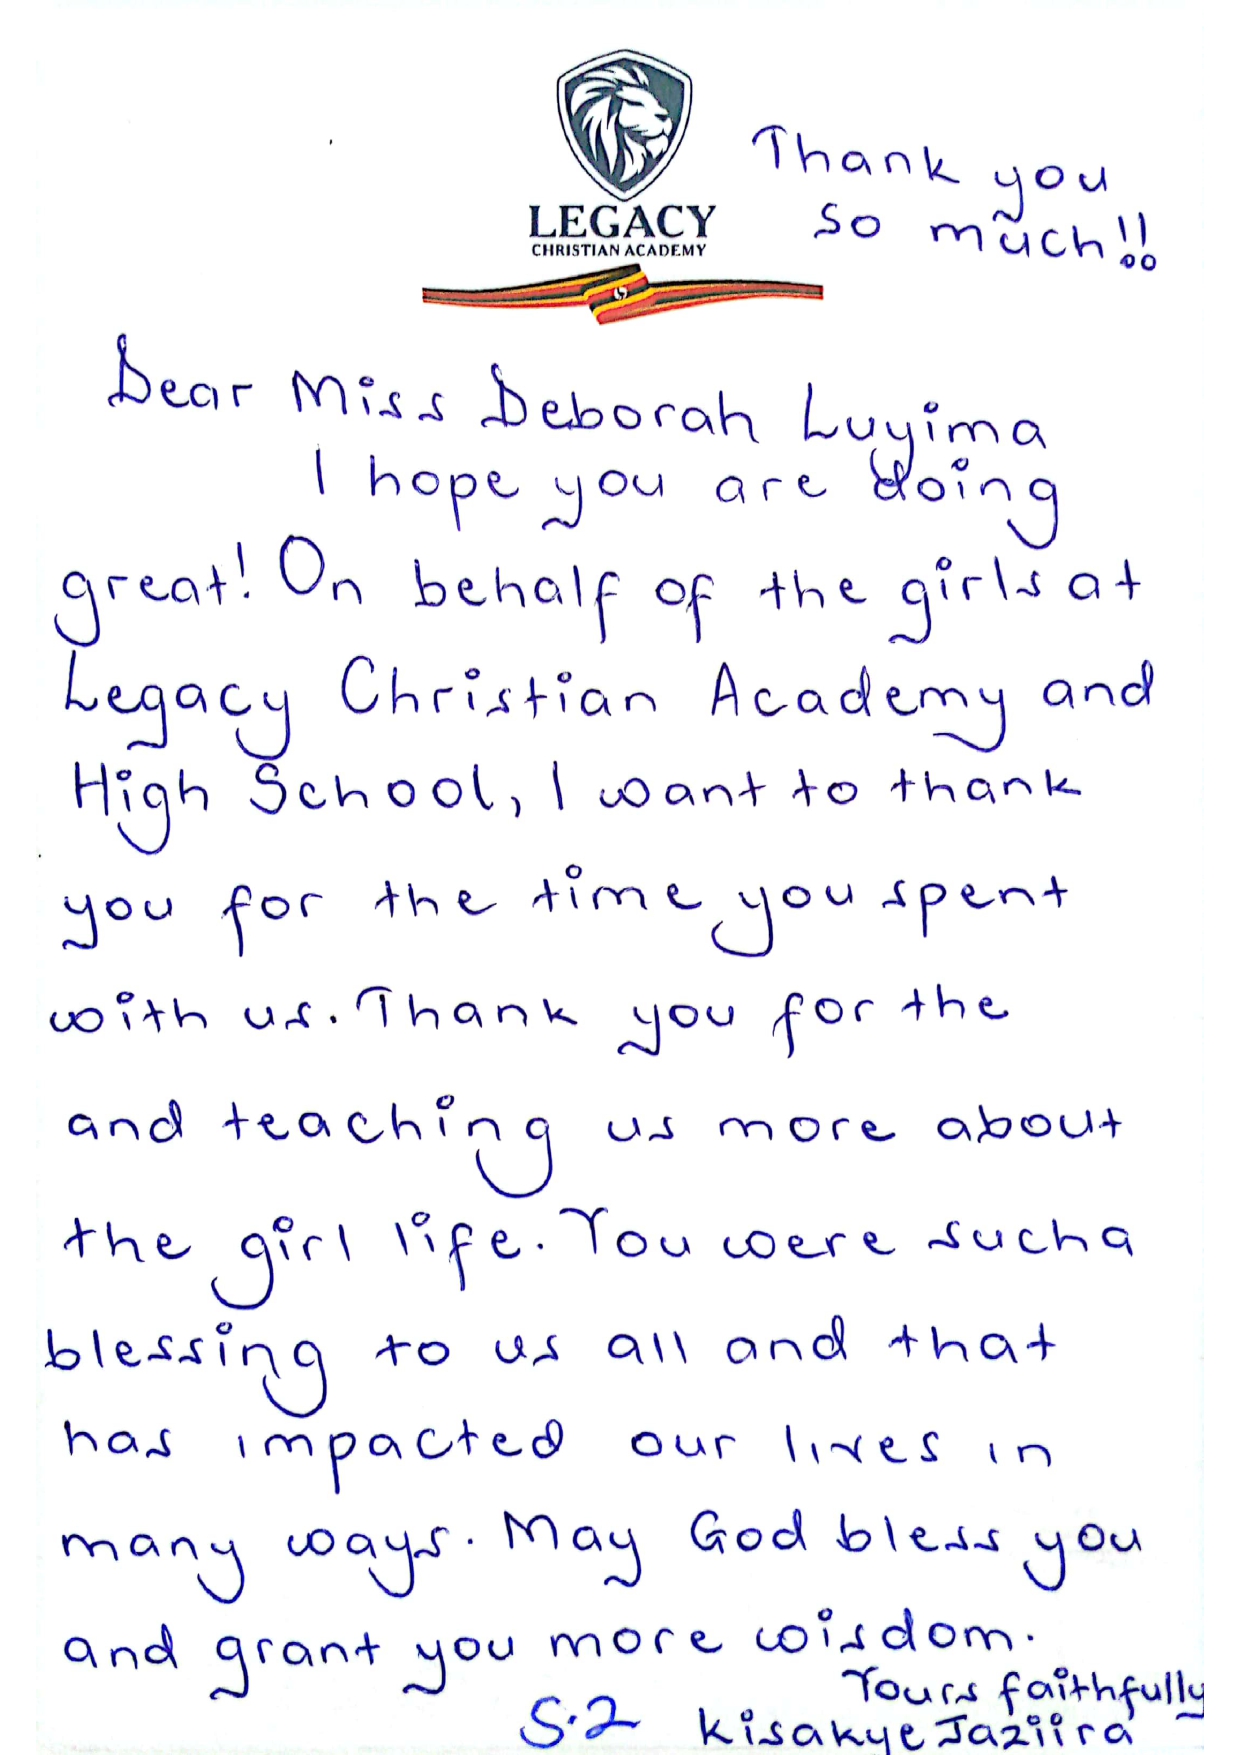 LEGACY
CHRISTIAN ACADEMY
Thank you
so much!!
Dear Miss Deborah Luyima
I hope you are doing
great! On behalf of the girls at
Legacy Christian Academy and
High School, I want to thank
you for the time you spent
with us. Thank you for the
and teaching us more about
the girl life. You were such a
blessing to us all and that
has impacted our lives in
many ways. May God bless you
and grant you more wisdom.
Yours faithfully
S.2 Kisakye Jaziira